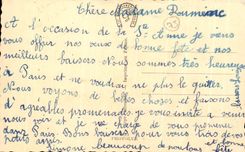 Chère Madame Doumienc
A l'occasion de la Ste Anne je viens
vous offrir nos vœux de bonne fête et nos
meilleurs baisers. Nous sommes très heureux
à Paris et ne voudrai ne plus le quitter.
Nous voyons de belles choses et faisons
d'agréables promenades je vous invite a venir
nous et je me charge de vous promener
dans Paris. Bons baisers pour vous trois et bonne
Simone beaucoup de